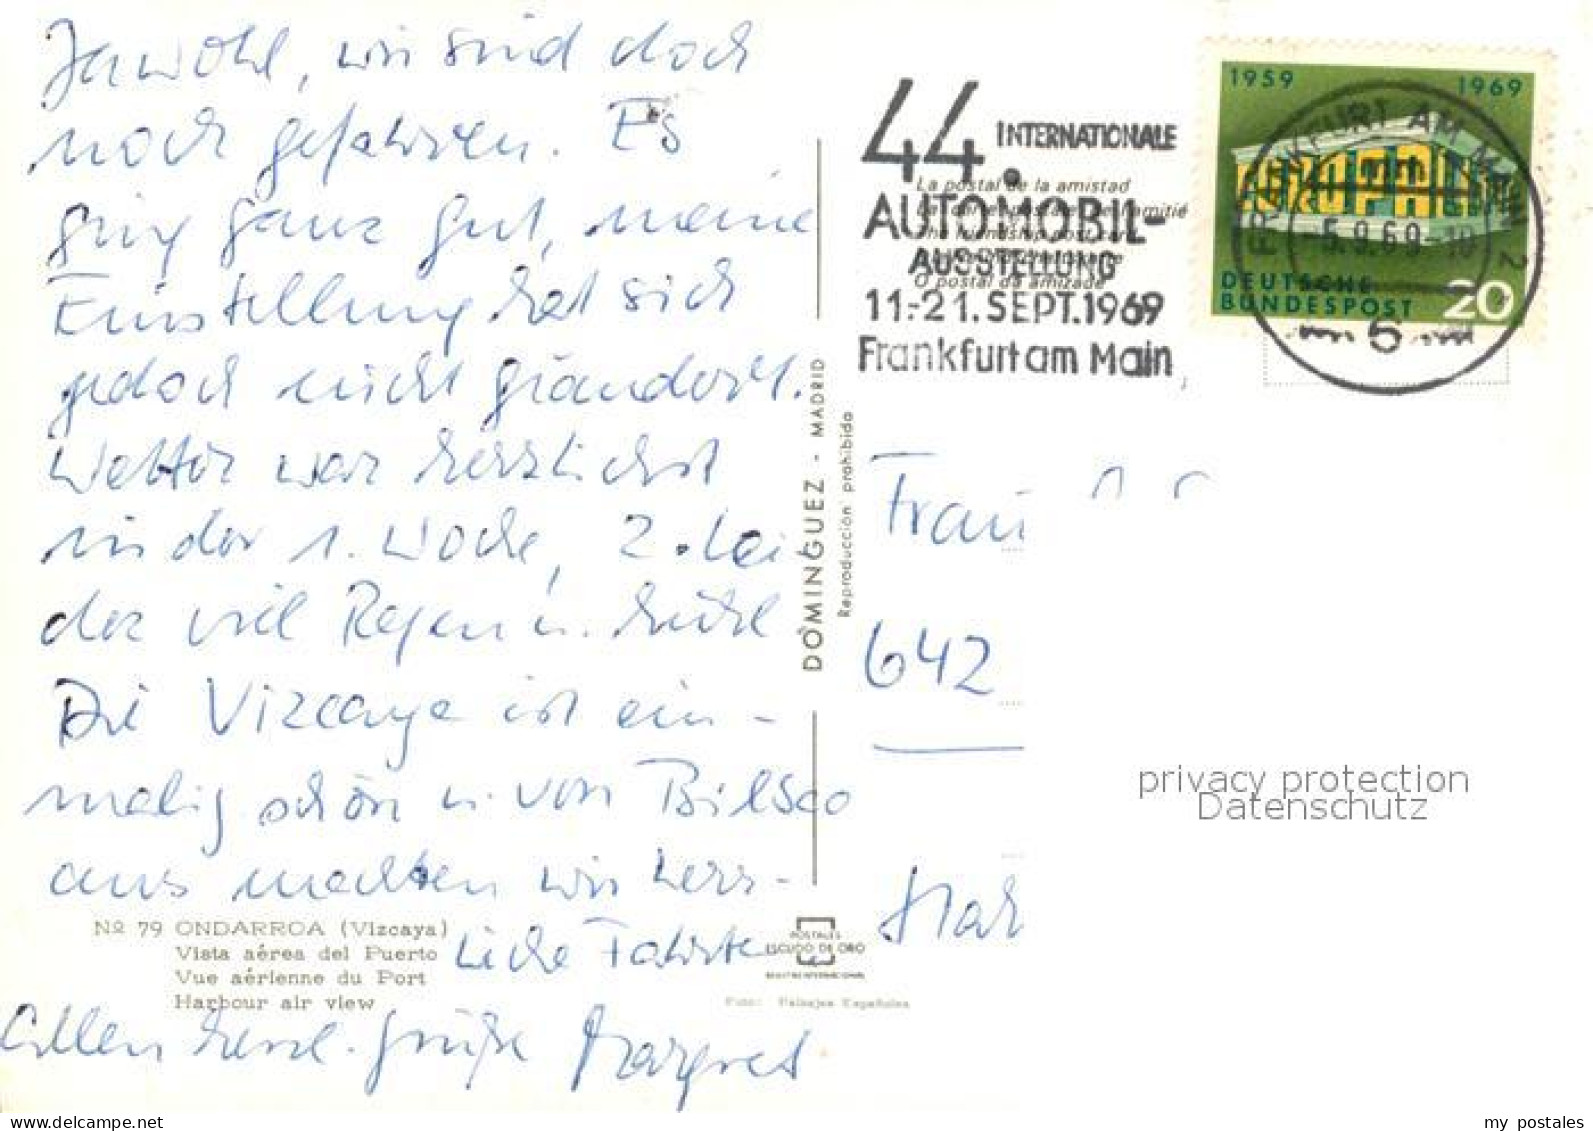 Jawohl, wir sind doch
noch gefahren. Es
ging ganz gut, meine
Einstellung hat sich
jedoch nicht geändert.
Wetter war herrlichst
in der 1. Woche, 2. lei
der viel Regen u. kühl
Die Vizcaya ist ein-
malig schön u. von Bilbao
aus machten wir herr-
liche Fahrten
Allen herzl. Grüße Margret
Nº 79 ONDARROA (Vizcaya)
Vista aérea del Puerto
Vue aérienne du Port
Harbour air view
DOMINGUEZ - MADRID
Reproducción prohibida
POSTALES
ESCUDO DE ORO
Foto: Paisajes Españoles
La postal de la amistad
O postal da amizade
44. INTERNATIONALE
AUTOMOBIL-
AUSSTELLUNG
11.-21. SEPT. 1969
Frankfurt am Main
1959 1969
EUROPA CEPT
DEUTSCHE
BUNDESPOST 20
FRANKFURT AM MAIN 2
-5.9.69-10
Frau
642
privacy protection
Datenschutz
my postales